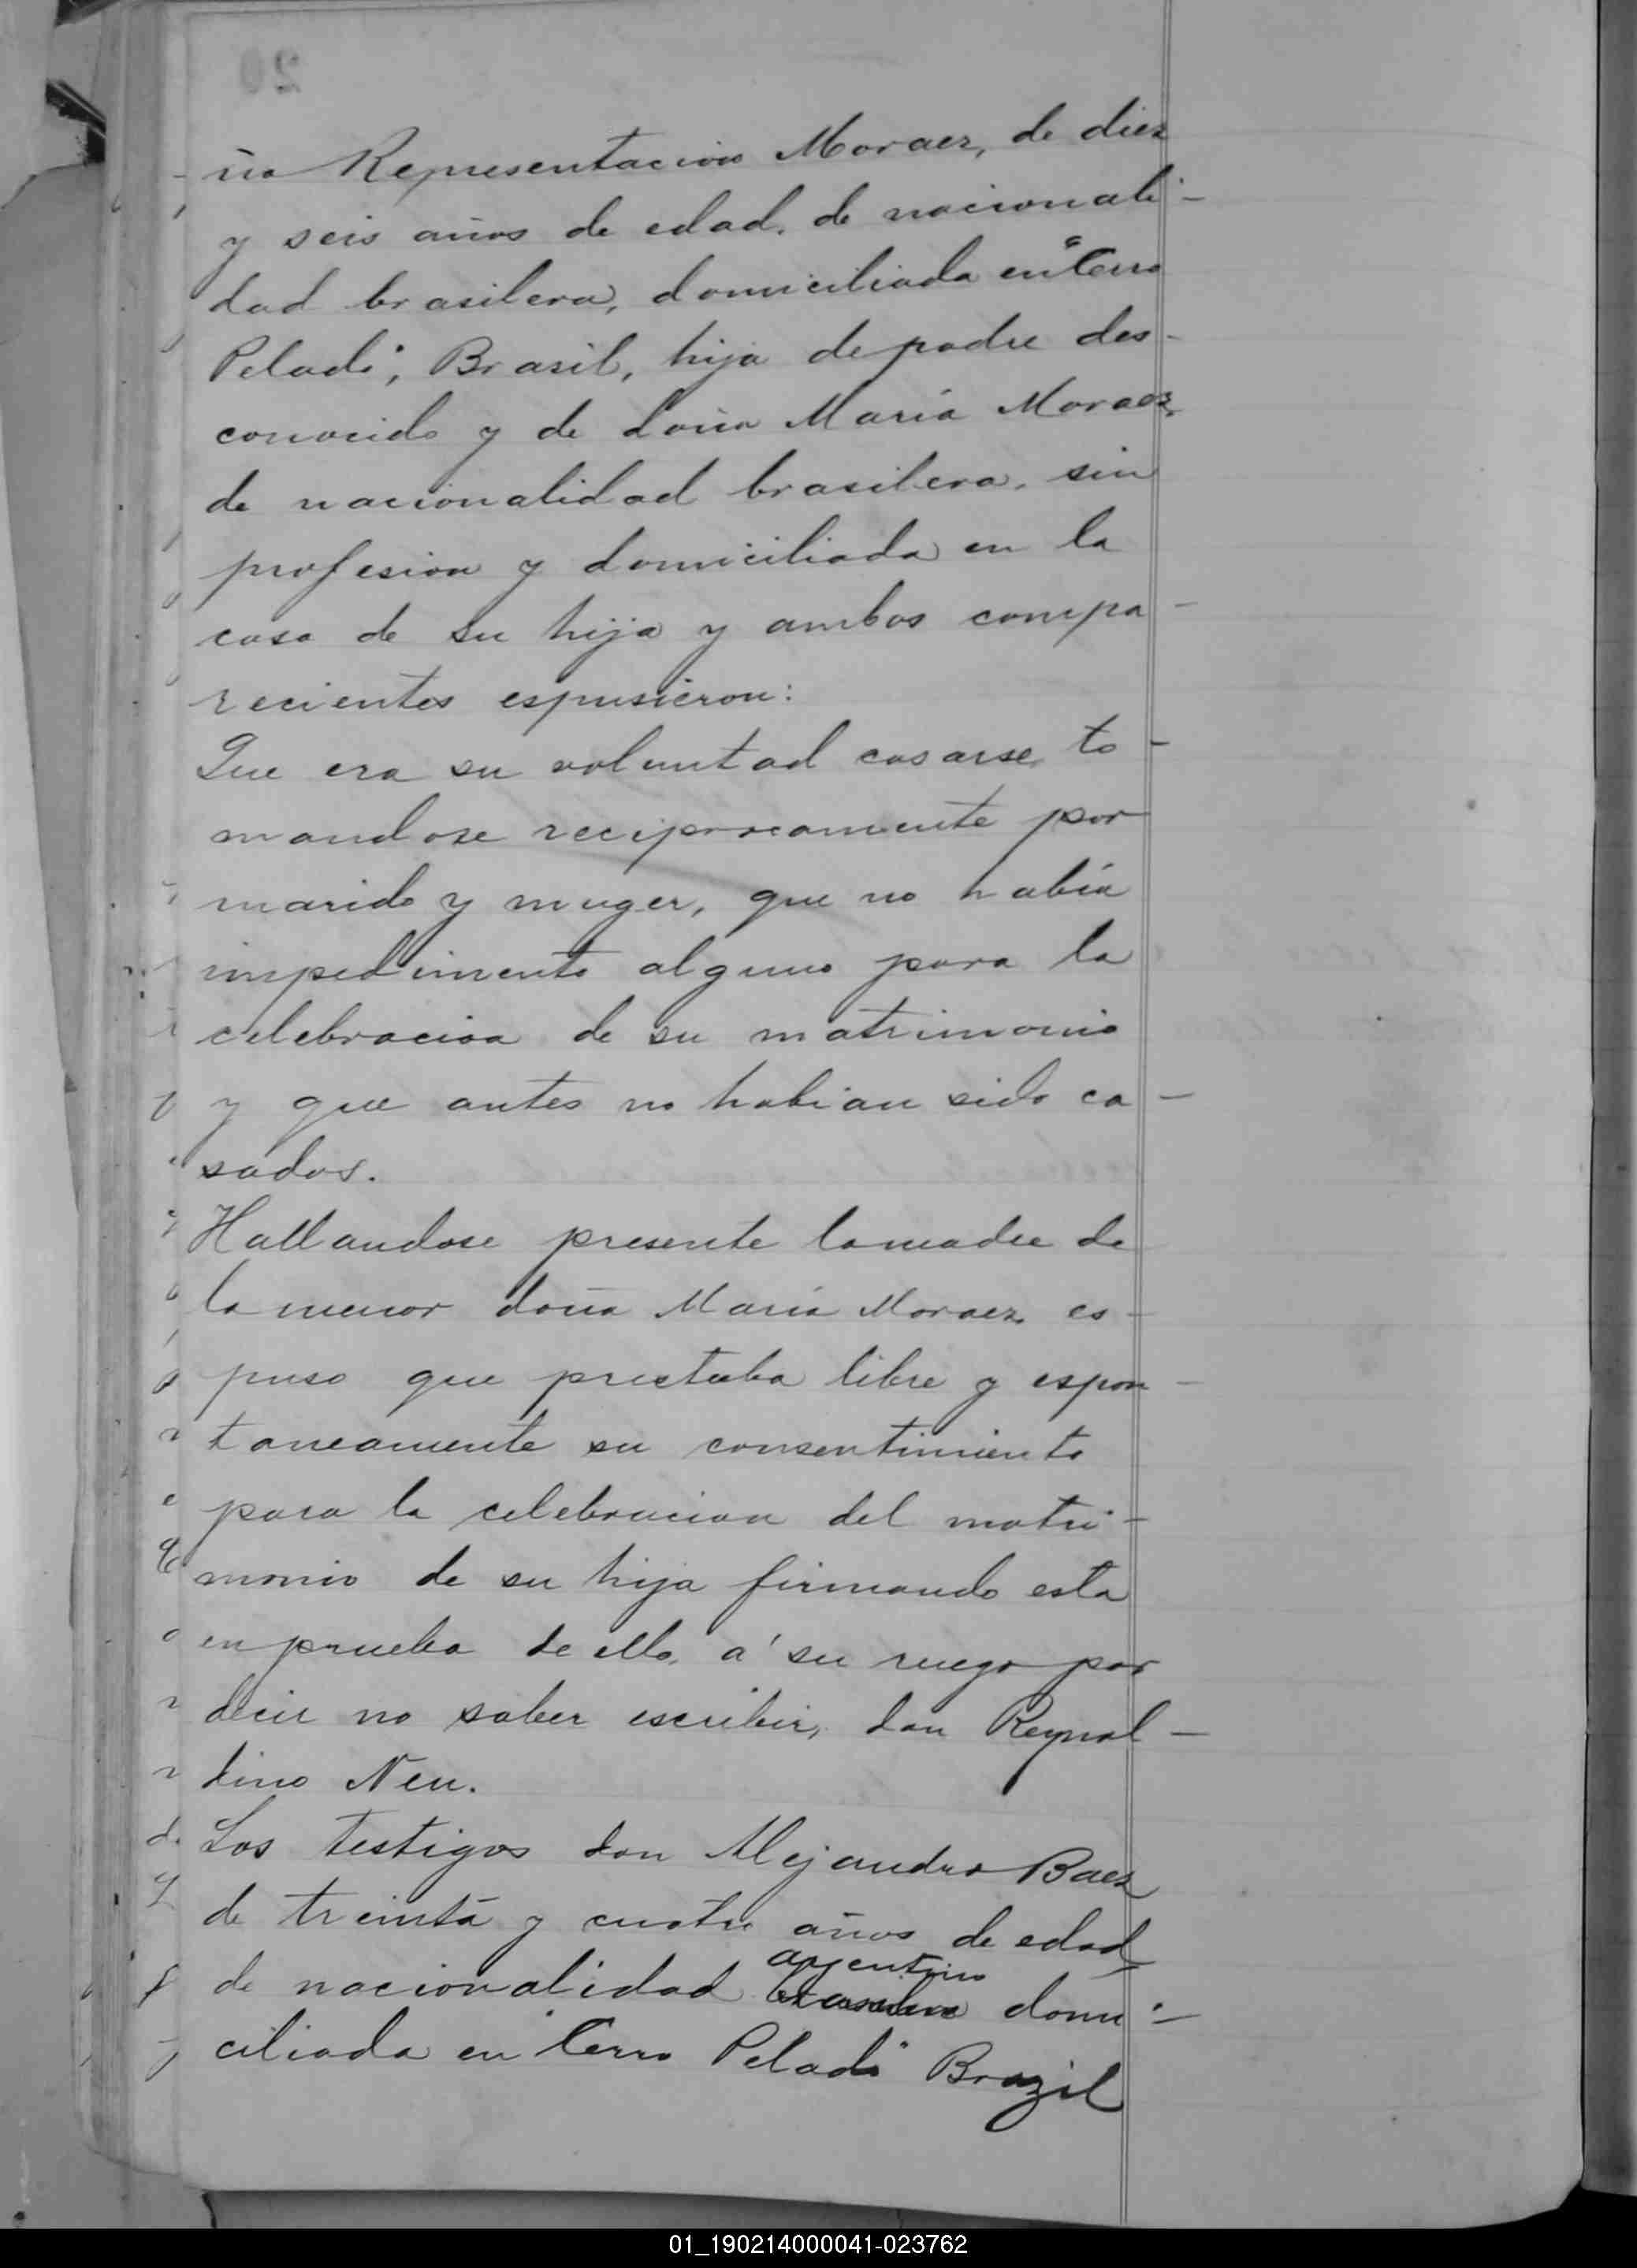 20
ña Representacion Moraez, de diez
y seis años de edad, de nacionali-
dad brasilera, domiciliada en "Cerro
Pelado", Brasil, hija de padre des-
conocido y de doña María Moraez,
de nacionalidad brasilera, sin
profesion y domiciliada en la
casa de su hija y ambos compa-
recientes espusieron:
Que era su voluntad casarse, to-
mandose reciprocamente por
marido y muger, que no había
impedimento alguno para la
celebracion de su matrimonio
y que antes no habian sido ca-
sados.
Hallandose presente la madre de
la menor doña María Moraez, es-
puso que prestaba libre y espon-
taneamente su consentimiento
para la celebracion del matri-
monio de su hija firmando esta
en prueba de ello, á su ruego por
decir no saber escribir, don Reynal-
dino Neu.
Los testigos don Alejandro Baez
de treinta y cuatro años de edad,
argentino
de nacionalidad brasilera domi-
ciliada en "Cerro Pelado" Brazil
01_190214000041-023762